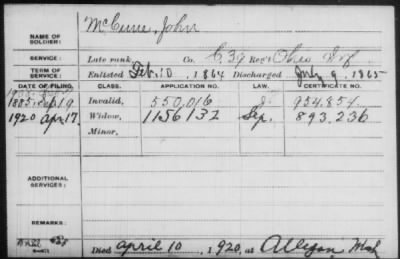 McCune, John
NAME OF SOLDIER:
SERVICE: Late rank, Co. C, 39 Reg't Ohio Inf
TERM OF SERVICE: Enlisted Feb. 10, 1864 Discharged July 9, 1865
DATE OF FILING. CLASS. APPLICATION NO. LAW. CERTIFICATE NO.
1885 Sep 19 Invalid, 550,016 954,854
1920 Apr 17. Widow, 1156132 Sep. 893,236
Minor,
ADDITIONAL SERVICES:
REMARKS:
Died April 10, 1920, at Allegan, Mich